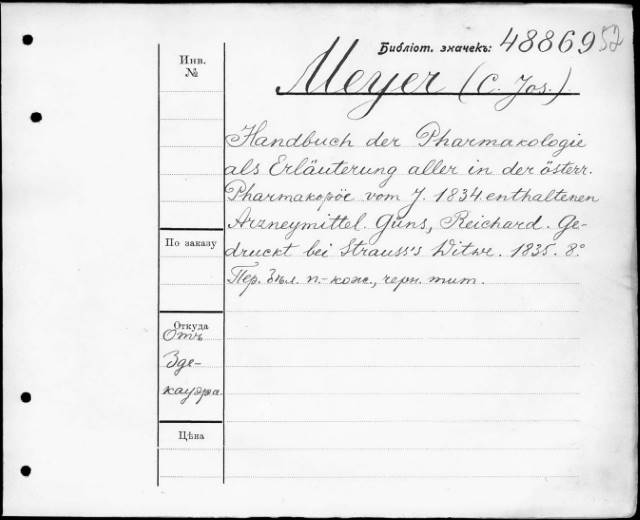 Библіот. значекъ: 48869 52
Инв. №
Meyer (C. Jos.)
Handbuch der Pharmakologie
als Erläuterung aller in der österr.
Pharmakopöe vom J. 1834 enthaltenen
Arzneymittel. Güns, Reichard. Ge-
druckt bei Strauss's Witwe. 1835. 8°
Пер. бѣл. п.-кож., черн. тит.
По заказу
Откуда
Отъ
Зде-
кауэра
Цѣна